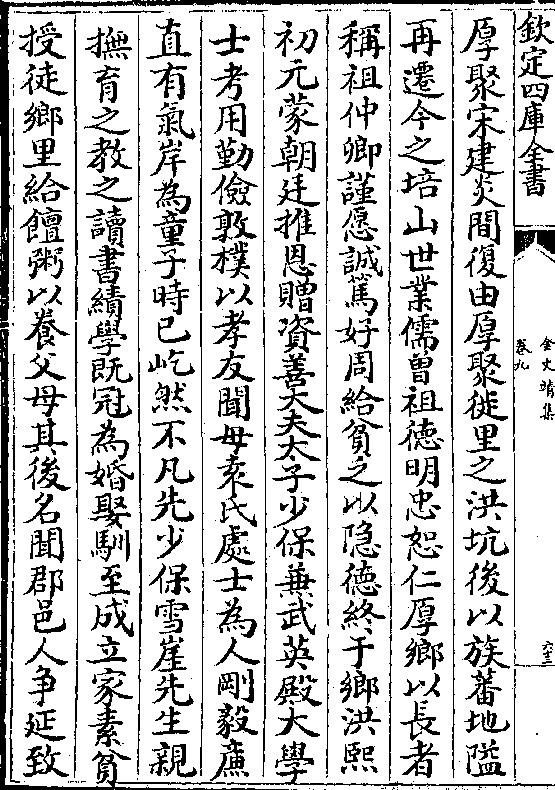 欽定四庫全書
金文靖集
卷九
六十三
厚聚宋建炎間復由厚聚徙里之洪坑後以族蕃地隘
再遷今之培山世業儒曾祖德明忠恕仁厚鄉以長者
稱祖仲卿謹愿誠篤好周給貧乏以隐德終于鄉洪熙
初元蒙朝廷推恩贈資善大夫太子少保兼武英殿大學
士考用勤儉敦樸以孝友聞母袁氏處士為人剛毅廉
直有氣岸為童子時已屹然不凡先少保雪崖先生親
撫育之教之讀書績學既冠為婚娶馴至成立家素貧
授徒鄉里給饘粥以養父母其後名聞郡邑人争延致